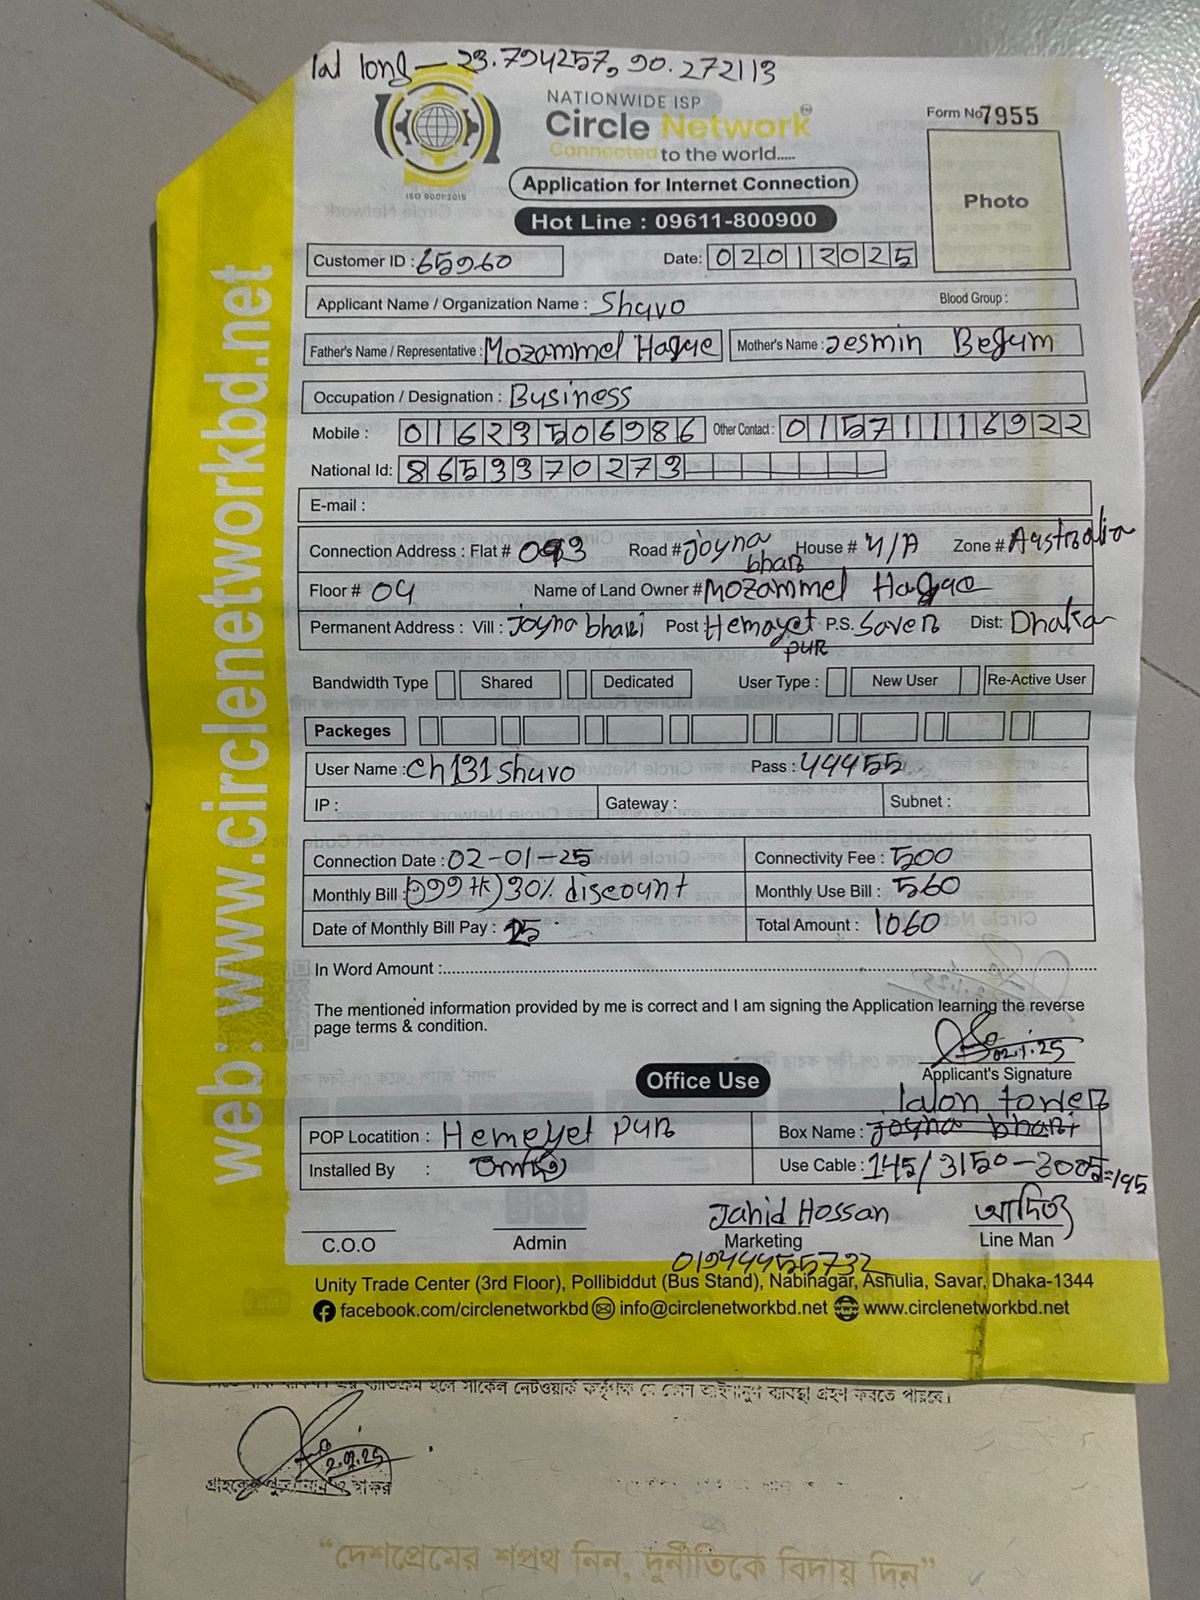 lat long - 23.794257, 90.272113
NATIONWIDE ISP
Circle Network
Connected to the world.....
ISO 9001:2015
Form No 7955
Photo
Application for Internet Connection
Hot Line : 09611-800900
Customer ID : 65960
Date: 02012025
Applicant Name / Organization Name : Shuvo
Blood Group :
Father's Name / Representative : Mozammel Haque
Mother's Name : Jesmin Begum
Occupation / Designation : Business
Mobile : 01623506986 Other Contact : 01571116922
National Id: 8653370273
E-mail :
Connection Address : Flat # Road # Joyna bhari House # N/A Zone # Australia
Floor # 04 Name of Land Owner # Mozammel Haque
Permanent Address : Vill : Joyna bhari Post Hemayet pur P.S. Saver Dist: Dhaka
Bandwidth Type Shared Dedicated User Type : New User Re-Active User
Packeges
User Name : ch131shuvo Pass : 44455
IP : Gateway : Subnet :
Connection Date : 02-01-25 Connectivity Fee : 500
Monthly Bill : 30% discount Monthly Use Bill : 560
Date of Monthly Bill Pay : Total Amount : 1060
In Word Amount :
The mentioned information provided by me is correct and I am signing the Application learning the reverse
page terms & condition.
02.1.25
Applicant's Signature
Office Use
lalon tower
POP Locatition : Hemeyet pur Box Name : Joyna bhari
Installed By : Use Cable : 145/3150-3005=145
Jahid Hossan
আদিত্য
C.O.O Admin Marketing Line Man
01944455732
Unity Trade Center (3rd Floor), Pollibiddut (Bus Stand), Nabinagar, Ashulia, Savar, Dhaka-1344
facebook.com/circlenetworkbd info@circlenetworkbd.net www.circlenetworkbd.net
web: www.circlenetworkbd.net
সার্কেল নেটওয়ার্ক কর্তৃপক্ষ যে কোন আইনানুগ ব্যবস্থা গ্রহণ করতে পারবে।
"দেশপ্রেমের শপথ নিন, দুর্নীতিকে বিদায় দিন"